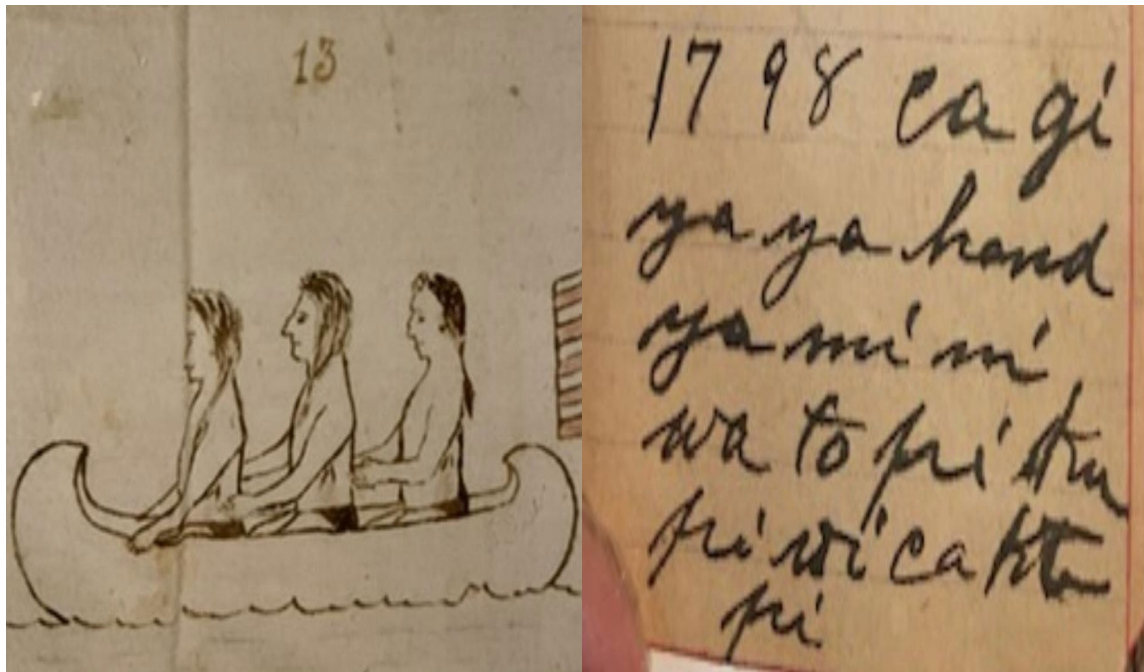 13
1798 ca gi
ya ya hand
ya mi ni
wa to pi ktu
pi wi ca kte
pi